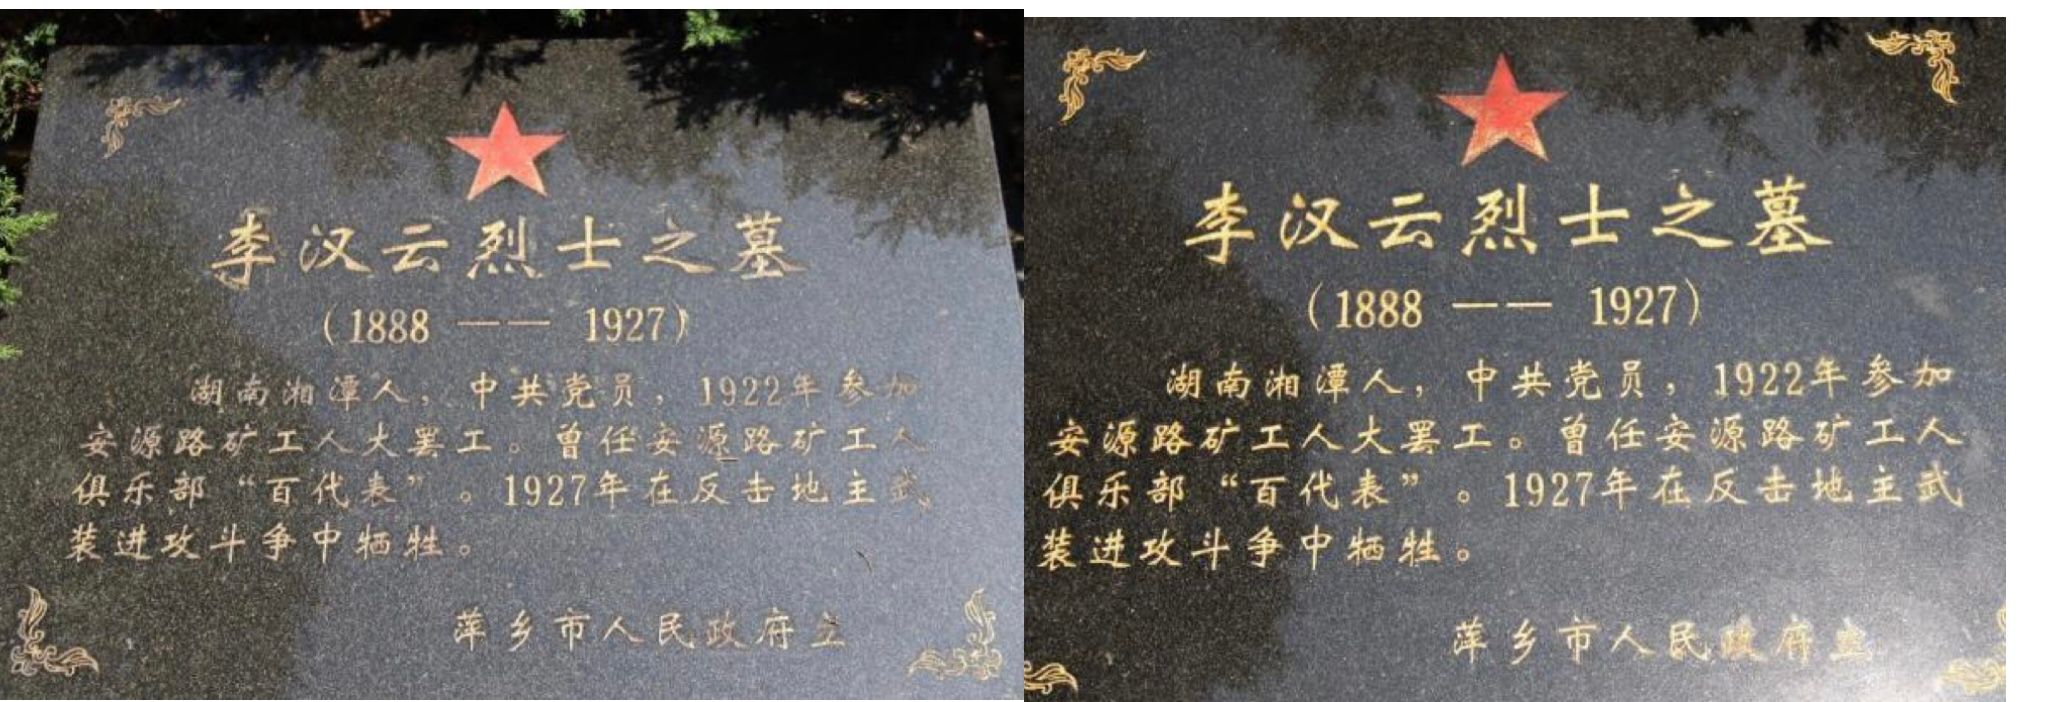 李汉云烈士之墓
（1888 —— 1927）
湖南湘潭人，中共党员，1922年参加
安源路矿工人大罢工。曾任安源路矿工人
俱乐部“百代表”。1927年在反击地主武
装进攻斗争中牺牲。
萍乡市人民政府立
李汉云烈士之墓
（1888 —— 1927）
湖南湘潭人，中共党员，1922年参加
安源路矿工人大罢工。曾任安源路矿工人
俱乐部“百代表”。1927年在反击地主武
装进攻斗争中牺牲。
萍乡市人民政府立